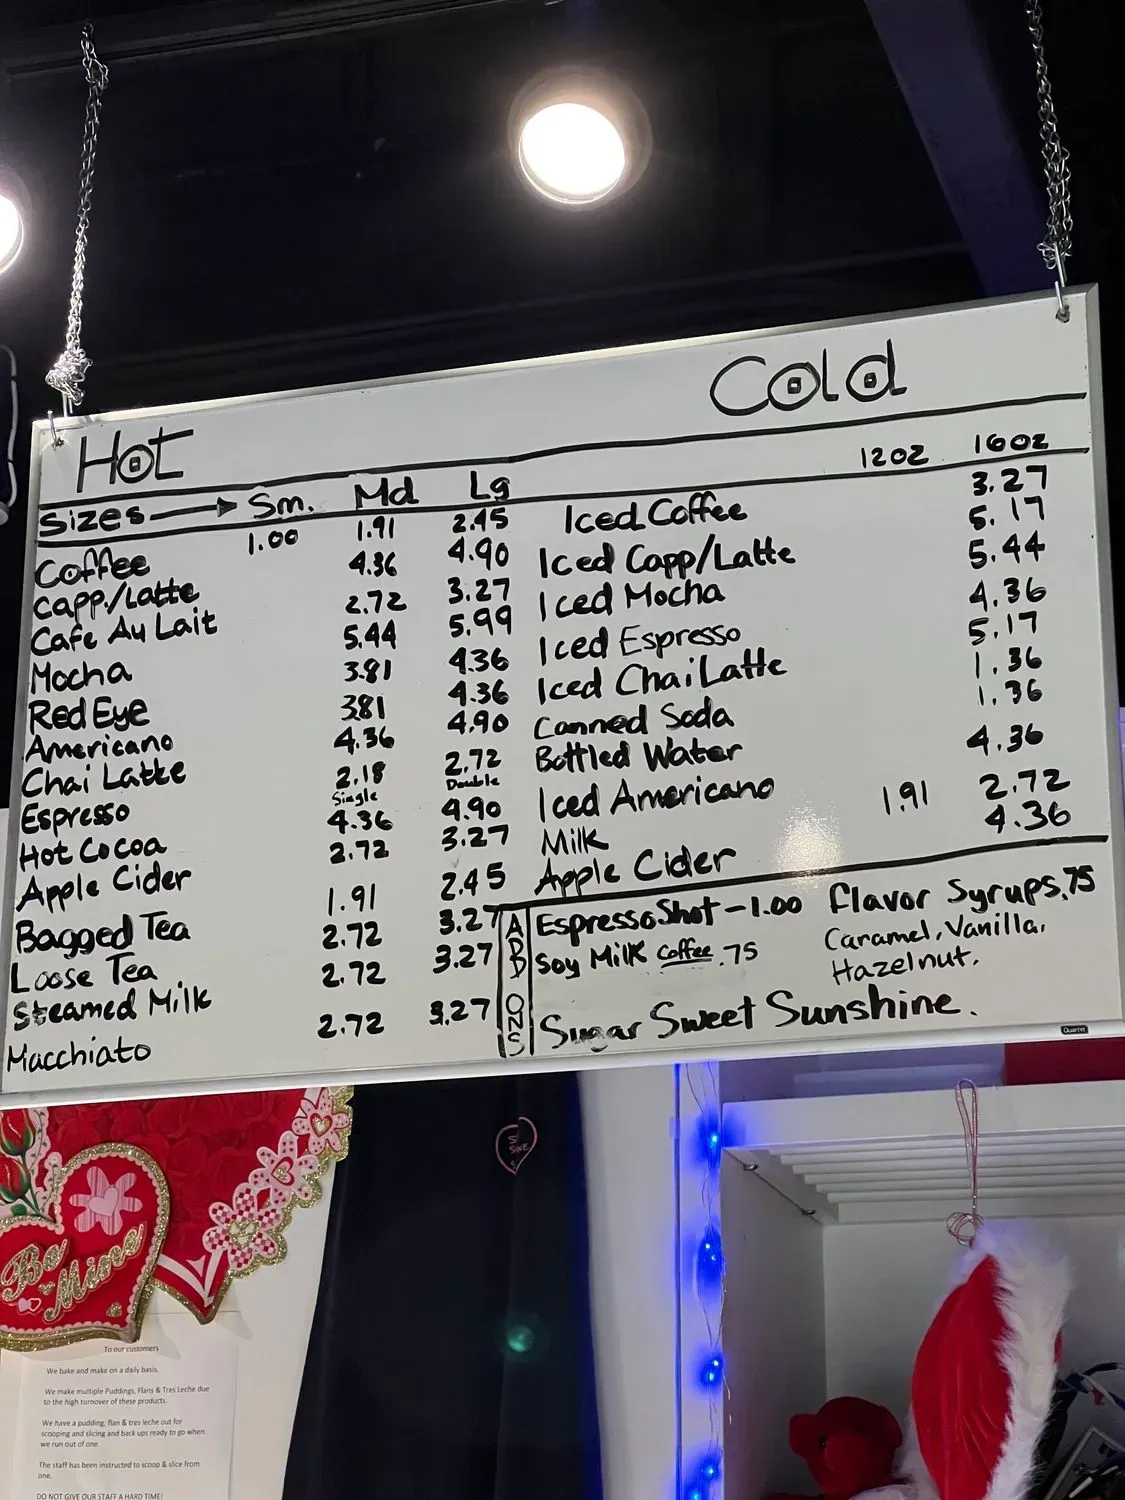 Hot
Cold
Sizes Sm. Md Lg
12OZ 16OZ
Coffee 1.00 1.91 2.45
Capp./Latte 4.36 4.90
Cafe Au Lait 2.72 3.27
Mocha 5.44 5.99
Red Eye 3.81 4.36
Americano 3.81 4.36
Chai Latte 4.36 4.90
Espresso 2.18 Single 2.72 Double
Hot Cocoa 4.36 4.90
Apple Cider 2.72 3.27
Bagged Tea 1.91 2.45
Loose Tea 2.72 3.27
Steamed Milk 2.72 3.27
Macchiato 2.72 3.27
Iced Coffee 3.27
Iced Capp/Latte 5.17
Iced Mocha 5.44
Iced Espresso 4.36
Iced Chai Latte 5.17
Canned Soda 1.36
Bottled Water 1.36
Iced Americano 4.36
Milk 1.91 2.72
Apple Cider 4.36
ADD ONS
Espresso Shot - 1.00
Soy Milk Coffee .75
Flavor Syrups .75
Caramel, Vanilla,
Hazelnut.
Sugar Sweet Sunshine.
Quartet
Be
Mine
To our customers
We bake and make on a daily basis.
We make multiple Puddings, Flans & Tres Leche due
to the high turnover of these products.
We have a pudding, flan & tres leche out for
scooping and slicing and back ups ready to go when
we run out of one.
The staff has been instructed to scoop & slice from
one.
DO NOT GIVE OUR STAFF A HARD TIME!